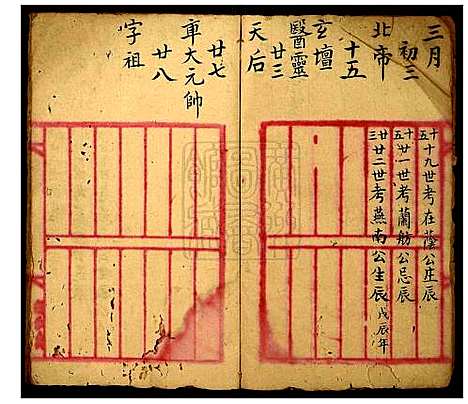 三月
初三
北帝
十五
玄壇
醫靈
廿三
天后
廿七
車大元帥
廿八
字祖
十五 十九世考在蔭公生辰
十五 廿一世考蘭舫公忌辰
廿三 廿二世考燕南公生辰 戊辰年